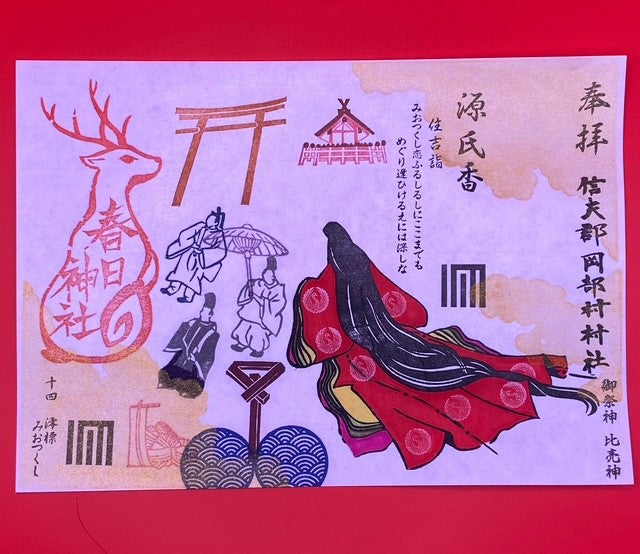 奉拝
信夫郡岡部村村社
御祭神 比売神
源氏香
住吉詣
みおつくし恋ふるしるしにここまでも
めぐり逢ひけるえには深しな
春日
神社
十四 澪標
みおつくし